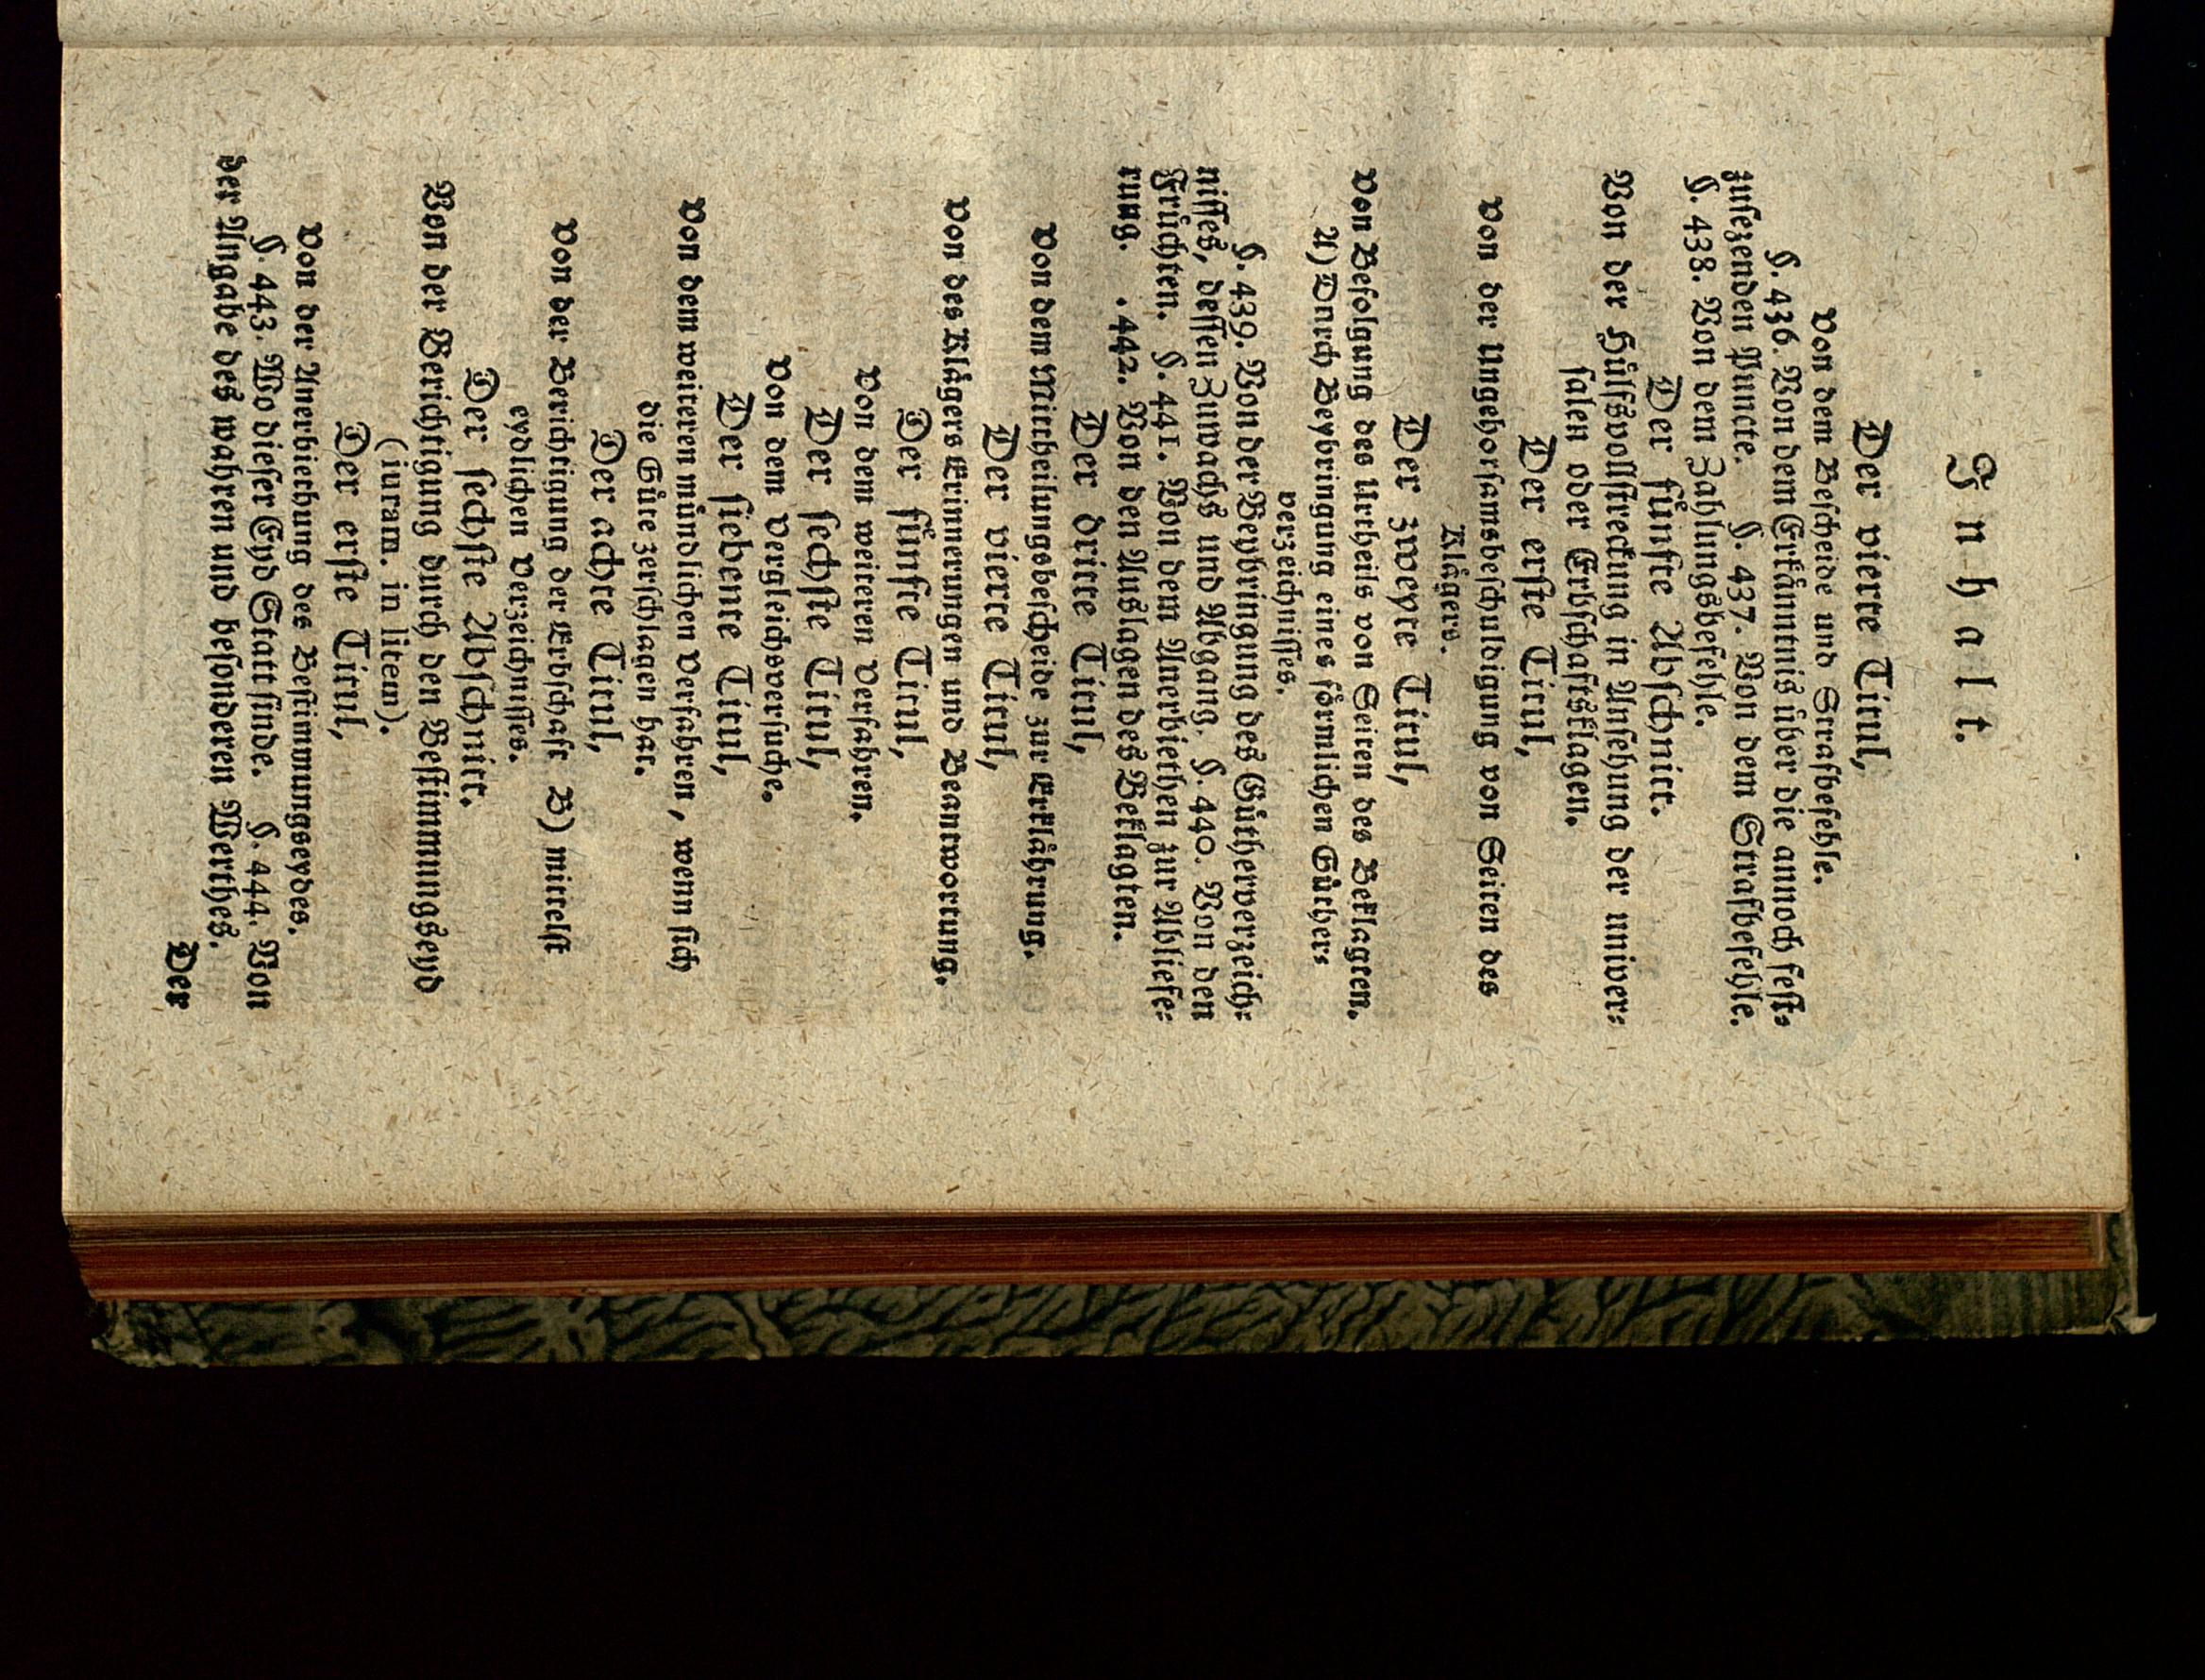 Inhalt.
Der vierte Titul,
Von dem Bescheide und Strafbefehle.
§. 436. Von dem Erkänntnis über die annoch fest-
zusezenden Puncte. §. 437. Von dem Strafbefehle.
§. 438. Von dem Zahlungsbefehle.
Der fünfte Abschnitt.
Von der Hülfsvollstreckung in Ansehung der univer-
salen oder Erbschaftsklagen.
Der erste Titul,
Von der Ungehorsamsbeschuldigung von Seiten des
Klägers.
Der zweyte Titul,
Von Befolgung des Urtheils von Seiten des Beklagten.
A) Durch Beybringung eines förmlichen Güther-
verzeichnisses.
§. 439. Von der Beybringung des Gütherverzeich-
nisses, dessen Zuwachs und Abgang. §. 440. Von den
Früchten. §. 441. Von dem Anerbiethen zur Abliefe-
rung. . 442. Von den Auslagen des Beklagten.
Der dritte Titul,
Von dem Mittheilungsbescheide zur Erklährung.
Der vierte Titul,
Von des Klägers Erinnerungen und Beantwortung.
Der fünfte Titul,
Von dem weiteren Verfahren.
Der sechste Titul,
Von dem Vergleichsversuche.
Der siebente Titul,
Von dem weiteren mündlichen Verfahren, wenn sich
die Güte zerschlagen hat.
Der achte Titul,
Von der Berichtigung der Erbschaft B) mittelst
eydlichen Verzeichnisses.
Der sechste Abschnitt.
Von der Berichtigung durch den Bestimmungseyd
(iuram. in litem).
Der erste Titul,
Von der Anerbiethung des Bestimmungseydes.
§. 443. Wo dieser Eyd Statt finde. §. 444. Von
der Angabe des wahren und besonderen Werthes.
Der